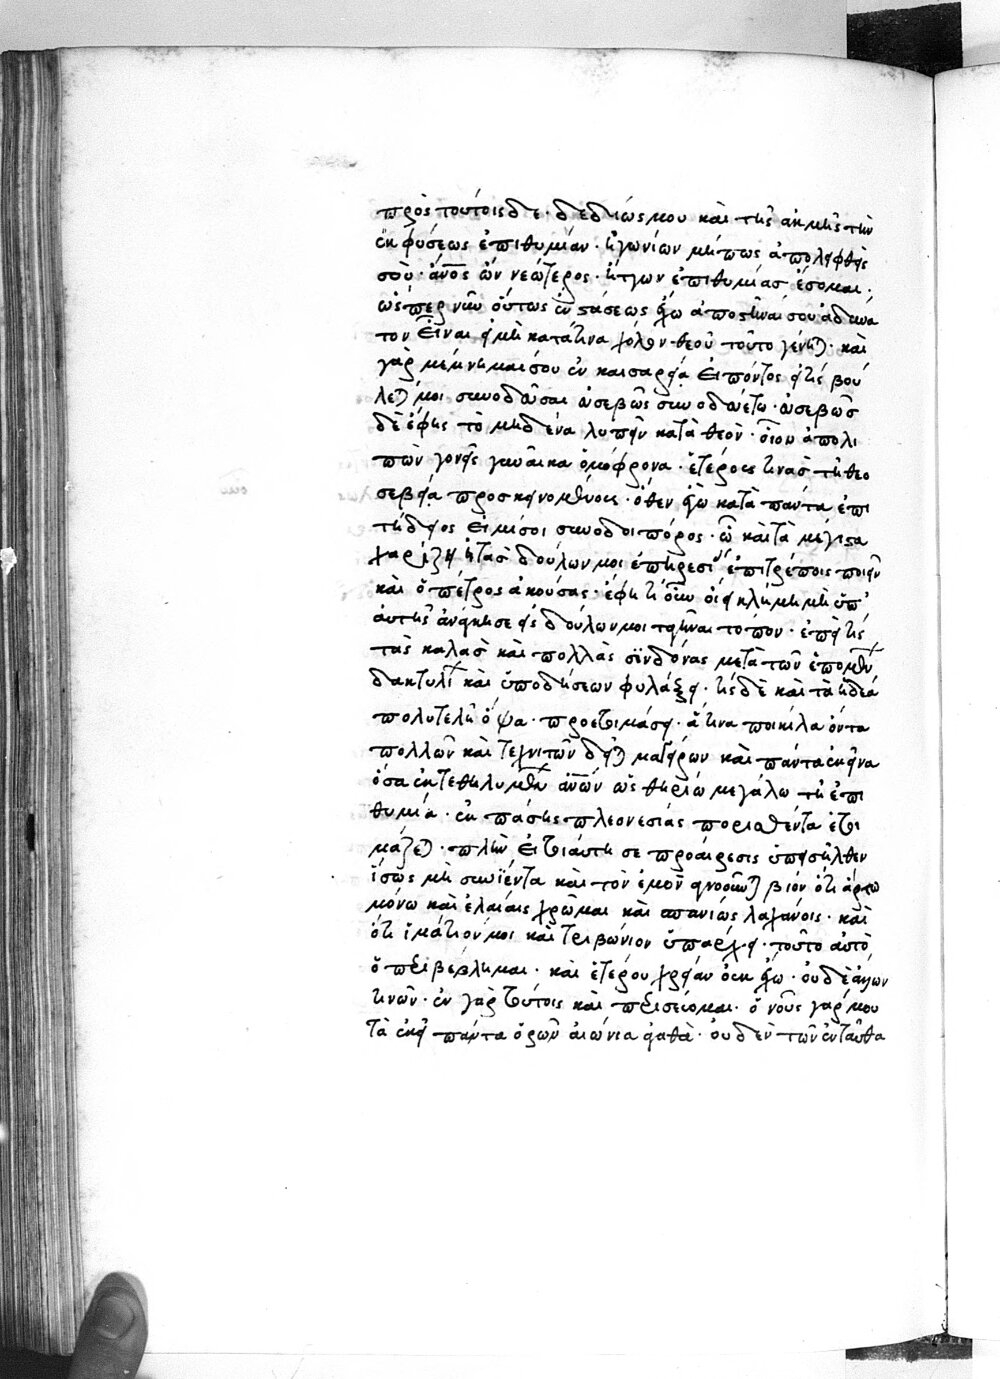 πρὸς τούτοις δε · δεδιώς μου καὶ τῆς ἀκμῆς τὴν
ἐκ φύσεως ἐπιθυμίαν · ἠγωνίων μήπως ἀπολειφθείς
σοῦ · ἄνος ὢν νεώτερος · ἥττων ἐπιθυμίας ἔσομαι ·
ὥσπερ νῦν οὕτως ἐν στάσεως ἔχω ἀποστῆναί σου ἀδύνα
τον εἶναι εἰ μὴ κατά τινα χόλον θεοῦ τοῦτο γένηται · καὶ
γὰρ μέμνημαί σου ἐν καισαρεία εἰπόντος εἴ τις βού
λεταί μοι συνοδεῦσαι εὐσεβῶς συνοδευέτω · εὐσεβῶς
δὲ ἔφης τὸ μηδένα λυπεῖν κατὰ θεὸν · οἷον ἀπολι
πὼν γονεῖς γυναῖκα ὁμόφρονα · ἑτέρους τινας τῆ θεο
σεβεία προσκειμένους · ὅθεν ἐγὼ κατὰ πάντα ἐπι
τήδειος εἰμί σοι συνοδοιπόρος · ᾧ καὶ τὰ μέγιστα
χαρίζη εἰ τὰς δούλων μοι ὑπηρεσίας ἐπιτρέποις ποιεῖν
καὶ ὁ πέτρος ἀκούσας · ἔφη τί οὖν οἴει κλήμη μὴ ὑπ'
αὐτῆς ἀνάγκης εἰς δούλων μοι ταγῆναι τόπον · ἐπεὶ τίς
τὰς καλὰς καὶ πολλὰς σινδόνας μετὰ τῶν ἑπομένων
δακτυλίων καὶ ὑποδήσεων φυλάξει · τίς δὲ καὶ τὰ ἡδέα
πολυτελῆ ὄψα · προετοιμάσει · ἅτινα ποικίλα ὄντα
πολλῶν καὶ τεχνιτῶν δεῖται μαγείρων καὶ πάντα ἐκεῖνα
ὅσα ἐκτεθηλυμένων ἀνῶν ὡς θηρίω μεγάλω τῆ ἐπι
θυμία · ἐκ πάσης πλεονεξίας πορισθέντα ἑτοι
μάζεται · πλὴν εἰ τοιαύτη σε προαίρεσις ὑπεισῆλθεν
ἴσως μὴ συνιέντα καὶ τὸν ἐμὸν ἀγνοοῦντα βίον ὅτι ἄρτω
μόνω καὶ ἐλαίαις χρῶμαι καὶ σπανίως λαχάνοις · καὶ
ὅτι ἱμάτιόν μοι καὶ τριβώνιον ὑπάρχει · τοῦτο αὐτὸ
ὃ περιβέβλημαι · καὶ ἑτέρου χρείαν οὐκ ἔχω · οὐδὲ ἄλλων
τινῶν · ἐν γὰρ τούτοις καὶ περισσεύομαι · ὁ νοῦς γάρ μου
τὰ ἐκεῖ πάντα ὁρῶν αἰώνια ἀγαθὰ · οὐδὲν τῶν ἐνταῦθα